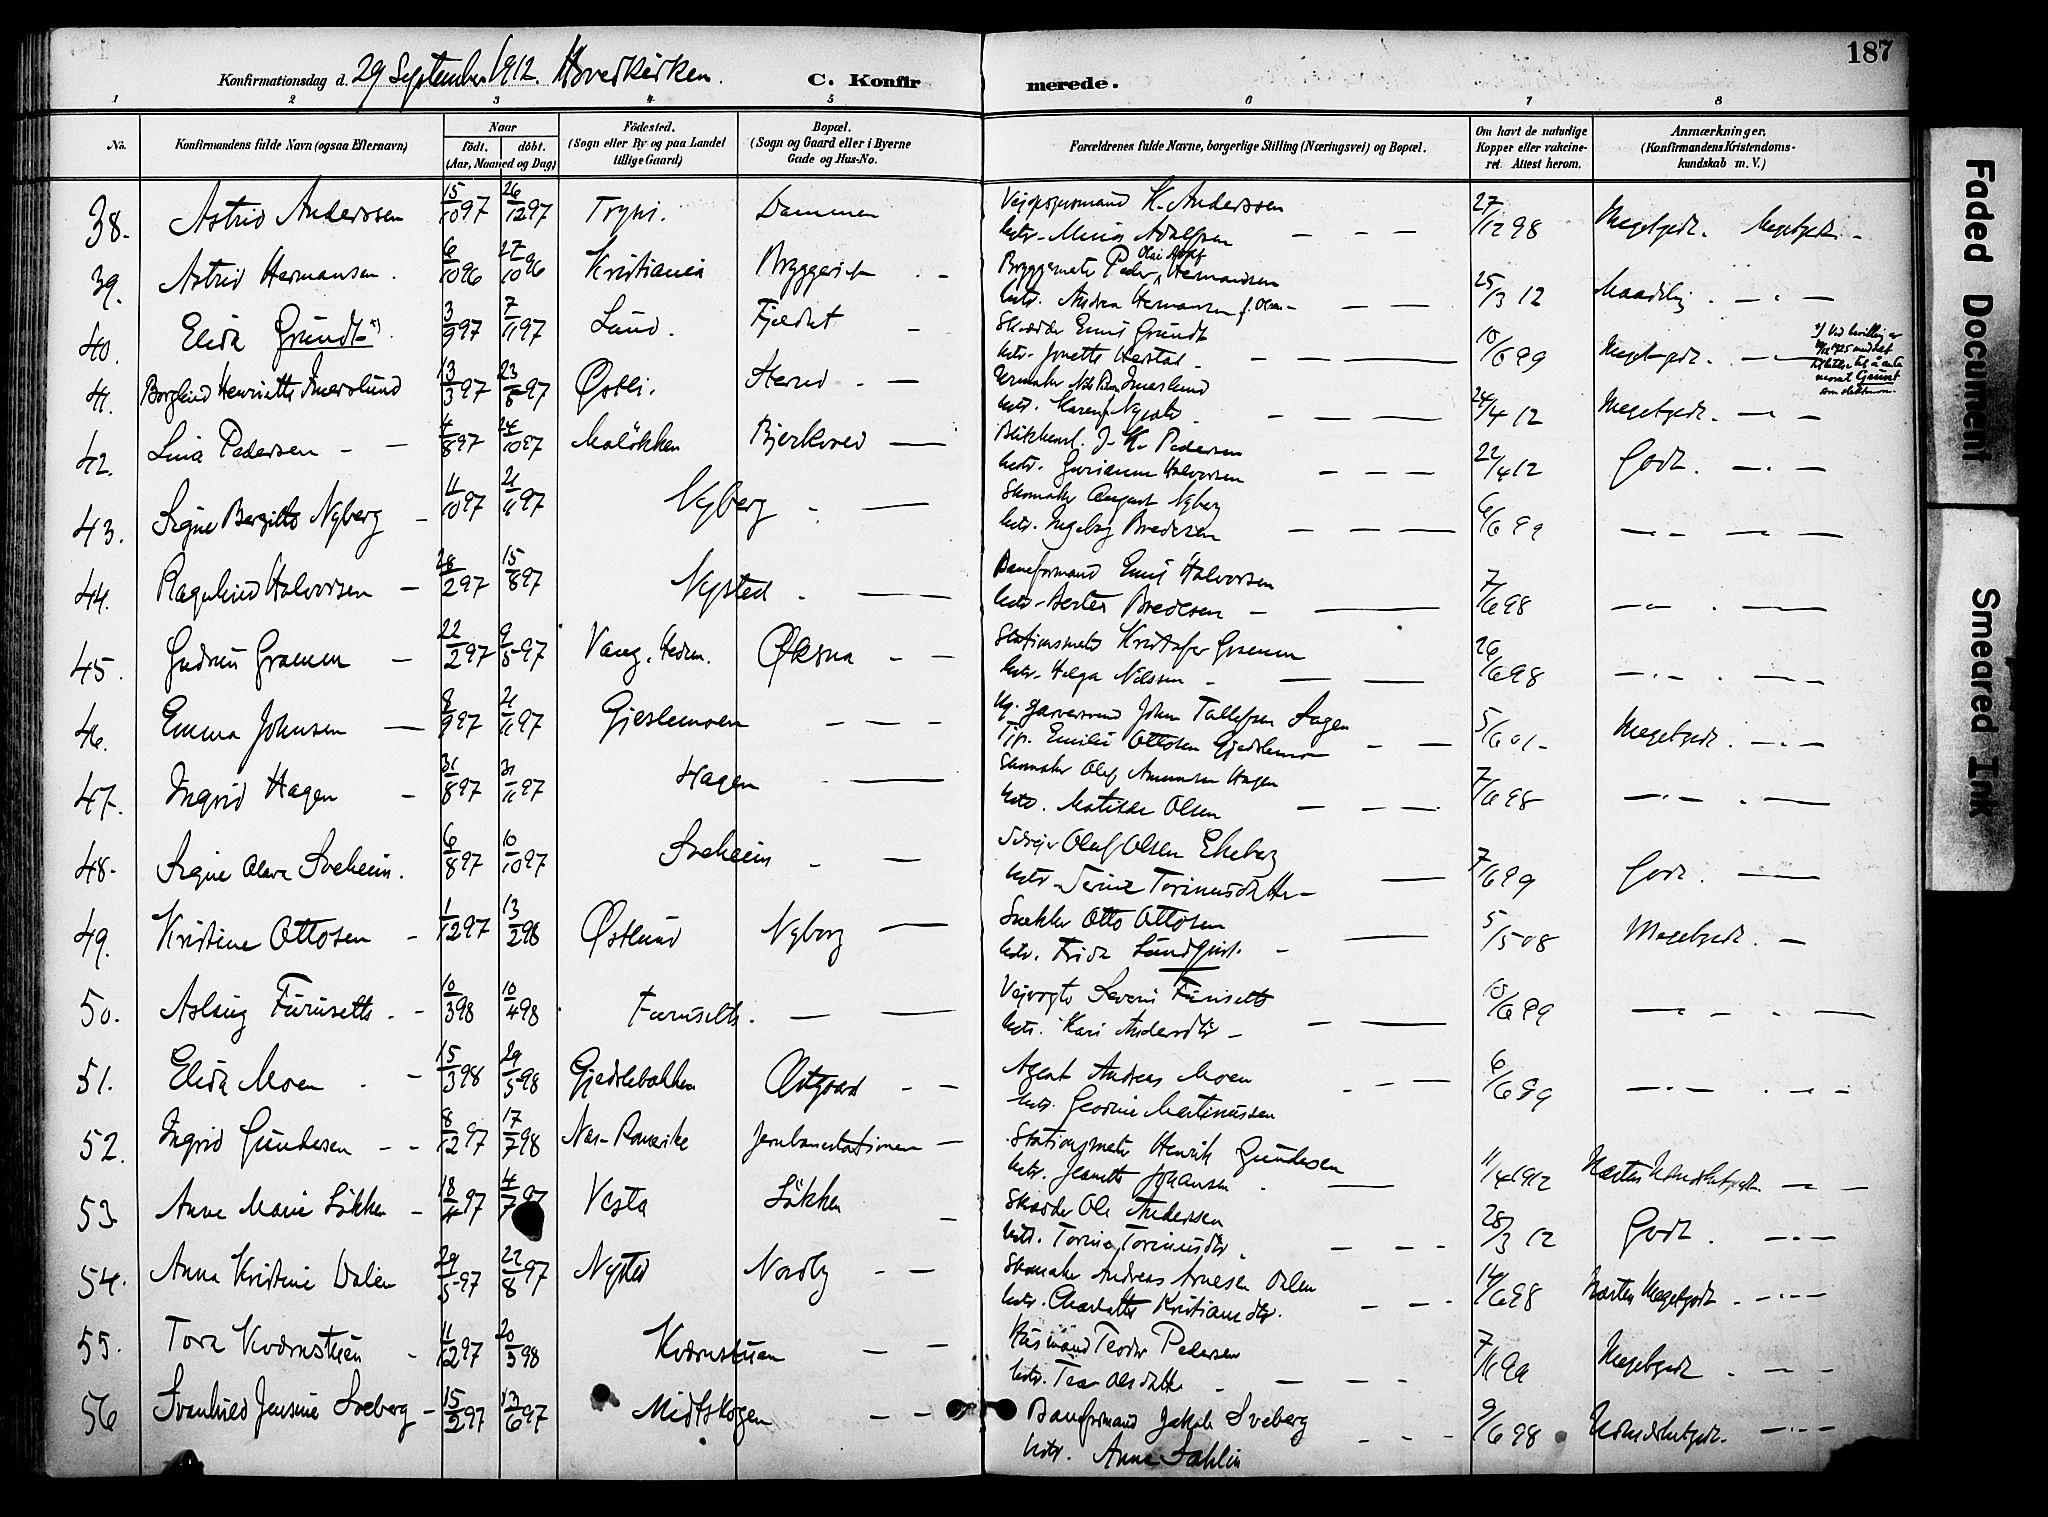 187
Konfirmationsdag d. 29 September 1912. Hovedkirken. C. Konfirmerede.
1 2 3 4 5 6 7 8
No. Konfirmandens fulde Navn (ogsaa Efternavn) Naar født. døbt. (Aar, Maaned og Dag) Fødested. (Sogn eller By og paa Landet tillige Gaard) Bopæl. (Sogn og Gaard eller i Byerne Gade og Hus-No. Forældrenes fulde Navne, borgerlige Stilling (Næringsvei) og Bopæl. Om havt de naturlige Kopper eller vakcineret. Attest herom. Anmærkninger. (Konfirmandens Kristendomskundskab m. V.)
38. Astrid Anderssen 15/10 97 26/12 97 Dammen K. Anderssen 27/12 98 Megetgodt. Megetgodt
39. Astrid Hermansen. 6/10 96 27/10 96 Kristiania Bryggeriet Peder Olai Hermansen
hstr. Andrea Hermansen f. Olsen 25/3 12 Maadelig
40. Elida Grundt 3/9 97 7/11 97 Lund. Fjeldet Skrædder Emil Grundt
hstr. Jonette Herstad 10/6 99 Megetgodt.
41. Borghild Henriette Imerslund 13/3 97 23/5 97 Østli. Urmaker Imerslund
hstr. Karen 24/4 12 Megetgodt.
42. Lina Pedersen 4/8 97 24/10 97 Moløkken Bjerkevei J. K. Pedersen
hstr. Halvorsen 22/4 12 Godt.
43. Signe Bergitte Nyberg 11/10 97 21/11 97 Nyberg Skomaker August Nyberg
hstr. Ingeborg Bredesen 6/6 99
44. Ragnhild Halvorsen 28/2 97 15/8 97 Nysted Baneformand Emil Halvorsen
hstr. Bertea Bredesen 7/6 98
45. Gudrun Gramm 22/2 97 9/5 97 Vang, Hedm. Øksna Stationsmester Kristofer Gramm
hstr. Helga Nilssen 26/6 98
46. Emma Johnsen 8/9 97 21/11 97 Gjeslemoen Johan Tollefsen Hagen
Tjp. Emilie Ottosen Gjedslemo 5/6 01 Megetgodt.
47. Ingrid Hagen 31/8 97 21/11 97 Hagen Skomaker Olaf Amundsen Hagen
hstr. Matilde Olsen 7/6 98
48. Signe Olava Sveheim. 6/8 97 10/10 97 Sveheim Olaf Olsen Ekeberg
hstr. Serine Torinusdatter 7/6 99 Godt.
49. Kristine Ottosen 1/12 97 13/2 98 Østlund Nyborg Snekker Otto Ottosen
hstr. Frida Lundqvist. 5/5 08 Megetgodt.
50. Aslaug Furusett 10/3 98 10/4 98 Furuseth. Vejvogter Severin Furuseth
hstr. Kari Andersdtr 10/6 99
51. Elida Moen 15/3 98 29/5 98 Gjedslebakken Østgaard Agent Andreas Moen
hstr. Georine Martinussen 6/6 99
52. Ingrid Gundesen 8/12 97 17/7 98 Nes-Romerike Jernbanestationen Stationsmester Henrik Gundesen
hstr. Jeanette Johansen 11/4 1912 Næsten Udmerketgodt
53. Anne Marie Løkken 18/4 97 4/7 97 Vesta Løkken Skrædder Ole Anderssen
hstr. Torine Torinusdtr 28/3 12 Godt.
54. Anna Kristine Dalen 29/5 97 22/8 97 Nysted Nordby Skomaker Andreas Arnesen Dalen
hstr. Charlotte Kristiansdtr. 14/6 98 Næsten Megetgodt
55. Tora Kværnstuen 11/12 97 20/3 98 Kværnstuen Husmand Teodor Pedersen
hstr. Tea Olsdatter 7/6 99 Megetgodt
56 Svanhild Jensine Sveberg 15/2 97 13/6 97 Midtskogen Baneformand Jakob Sveberg
hstr. Anna Dahlin 9/6 98 Udmerketgodt.
Faded Document
Smeared Ink